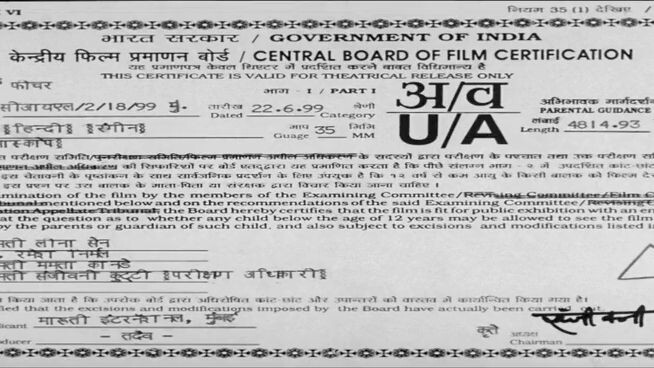 VI नियम 35 (1) देखिए /
भारत सरकार / GOVERNMENT OF INDIA
केन्द्रीय फिल्म प्रमाणन बोर्ड / CENTRAL BOARD OF FILM CERTIFICATION
यह प्रमाणपत्र केवल थिएटर में प्रदर्शित करने बाबत विधिमान्य है
THIS CERTIFICATE IS VALID FOR THEATRICAL RELEASE ONLY
फीचर भाग - I / PART I
सीआयएल/2/18/99 मु. तारीख 22.6.99 श्रेणी अ/व अभिभावक मार्गदर्शन
Dated Category PARENTAL GUIDANCE
हिन्दी रंगीन माप 35 मिमि U/A लंबाई 4814.93
Guage MM Length
परीक्षण समिति/पुनरीक्षण समिति/फिल्म प्रमाणन अपील अधिकरण के सदस्यों द्वारा परीक्षण के पश्चात तथा उक्त परीक्षण
की सिफारिशों पर बोर्ड एतद्द्वारा यह प्रमाणित करता है कि पीछे संलग्न भाग - २ में उपदर्शित कांट-छांट
इस चेतावनी के पृष्ठांकन के साथ सार्वजनिक प्रदर्शन के लिए उपयुक्त है कि १२ वर्ष से कम आयु के किसी बालक को फिल्म
इस प्रश्न पर उस बालक के माता-पिता या संरक्षक द्वारा विचार किया जाना चाहिए ।
mination of the film by the members of the Examining Committee/Revising Committee/Film C
mentioned below and on the recommendations of the said Examining Committee/Revising
ation Appellate Tribunal, the Board hereby certifies that the film is fit for public exhibition with an en
at the question as to whether any child below the age of 12 years may be allowed to see the film
by the parents or guardian of such child, and also subject to excisions and modifications listed i
मती लीना सेन
रमेश निर्मल
मती ममता कानडे
मती संजीवनी कुट्टी परीक्षण अधिकारी
किया जाता है कि उपरोक्त बोर्ड द्वारा अधिरोपित कांट-छांट और उपान्तरों को वास्तव में कार्यान्वित किया गया है।
fied that the excisions and modifications imposed by the Board have actually been carried out.
licant मारूती इंटरनेशनल, मुंबई
कृते अध्यक्ष
- तदैव - Chairman
oducer